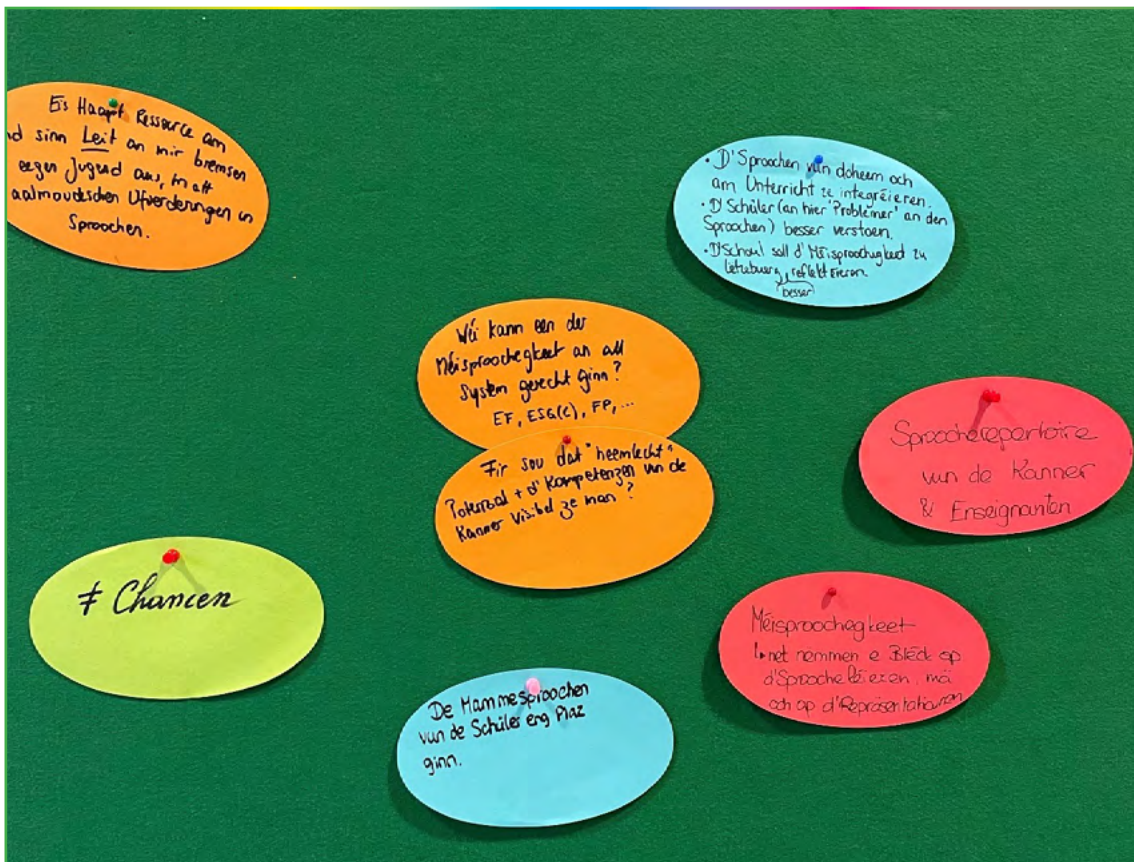 Eis Haapt Ressource am
nd sinn Leit an mir bremsen
eegen Jugend aus, m att
aalmoudeschen Ufuerderungen un
Sproochen.
• D'Sproochen vun doheem och
am Unterricht ze integréieren.
• D'Schüler (an hier 'Problemer' an den
Sproochen) besser verstoen.
• D'Schoul soll d'Méisproochegkeet zu
Lëtzebuerg reflektéieren.
(besser)
Wéi kann een der
Méisproochegkeet an all
System gerecht ginn?
EF, ESG(C), FP, ...
Fir sou dat "heemlecht"
Potenzial + d'Kompetenzen vun de
Kanner visibel ze man?
Sproocherepertoire
vun de Kanner
& Enseignanten
≠ Chancen
Méisproochegkeet
↳ net nemmen e Bléck op
d'Sproocheléieren, mä
och op d'Repräsentatiounen
De Mammesproochen
vun de Schüler eng Plaz
ginn.